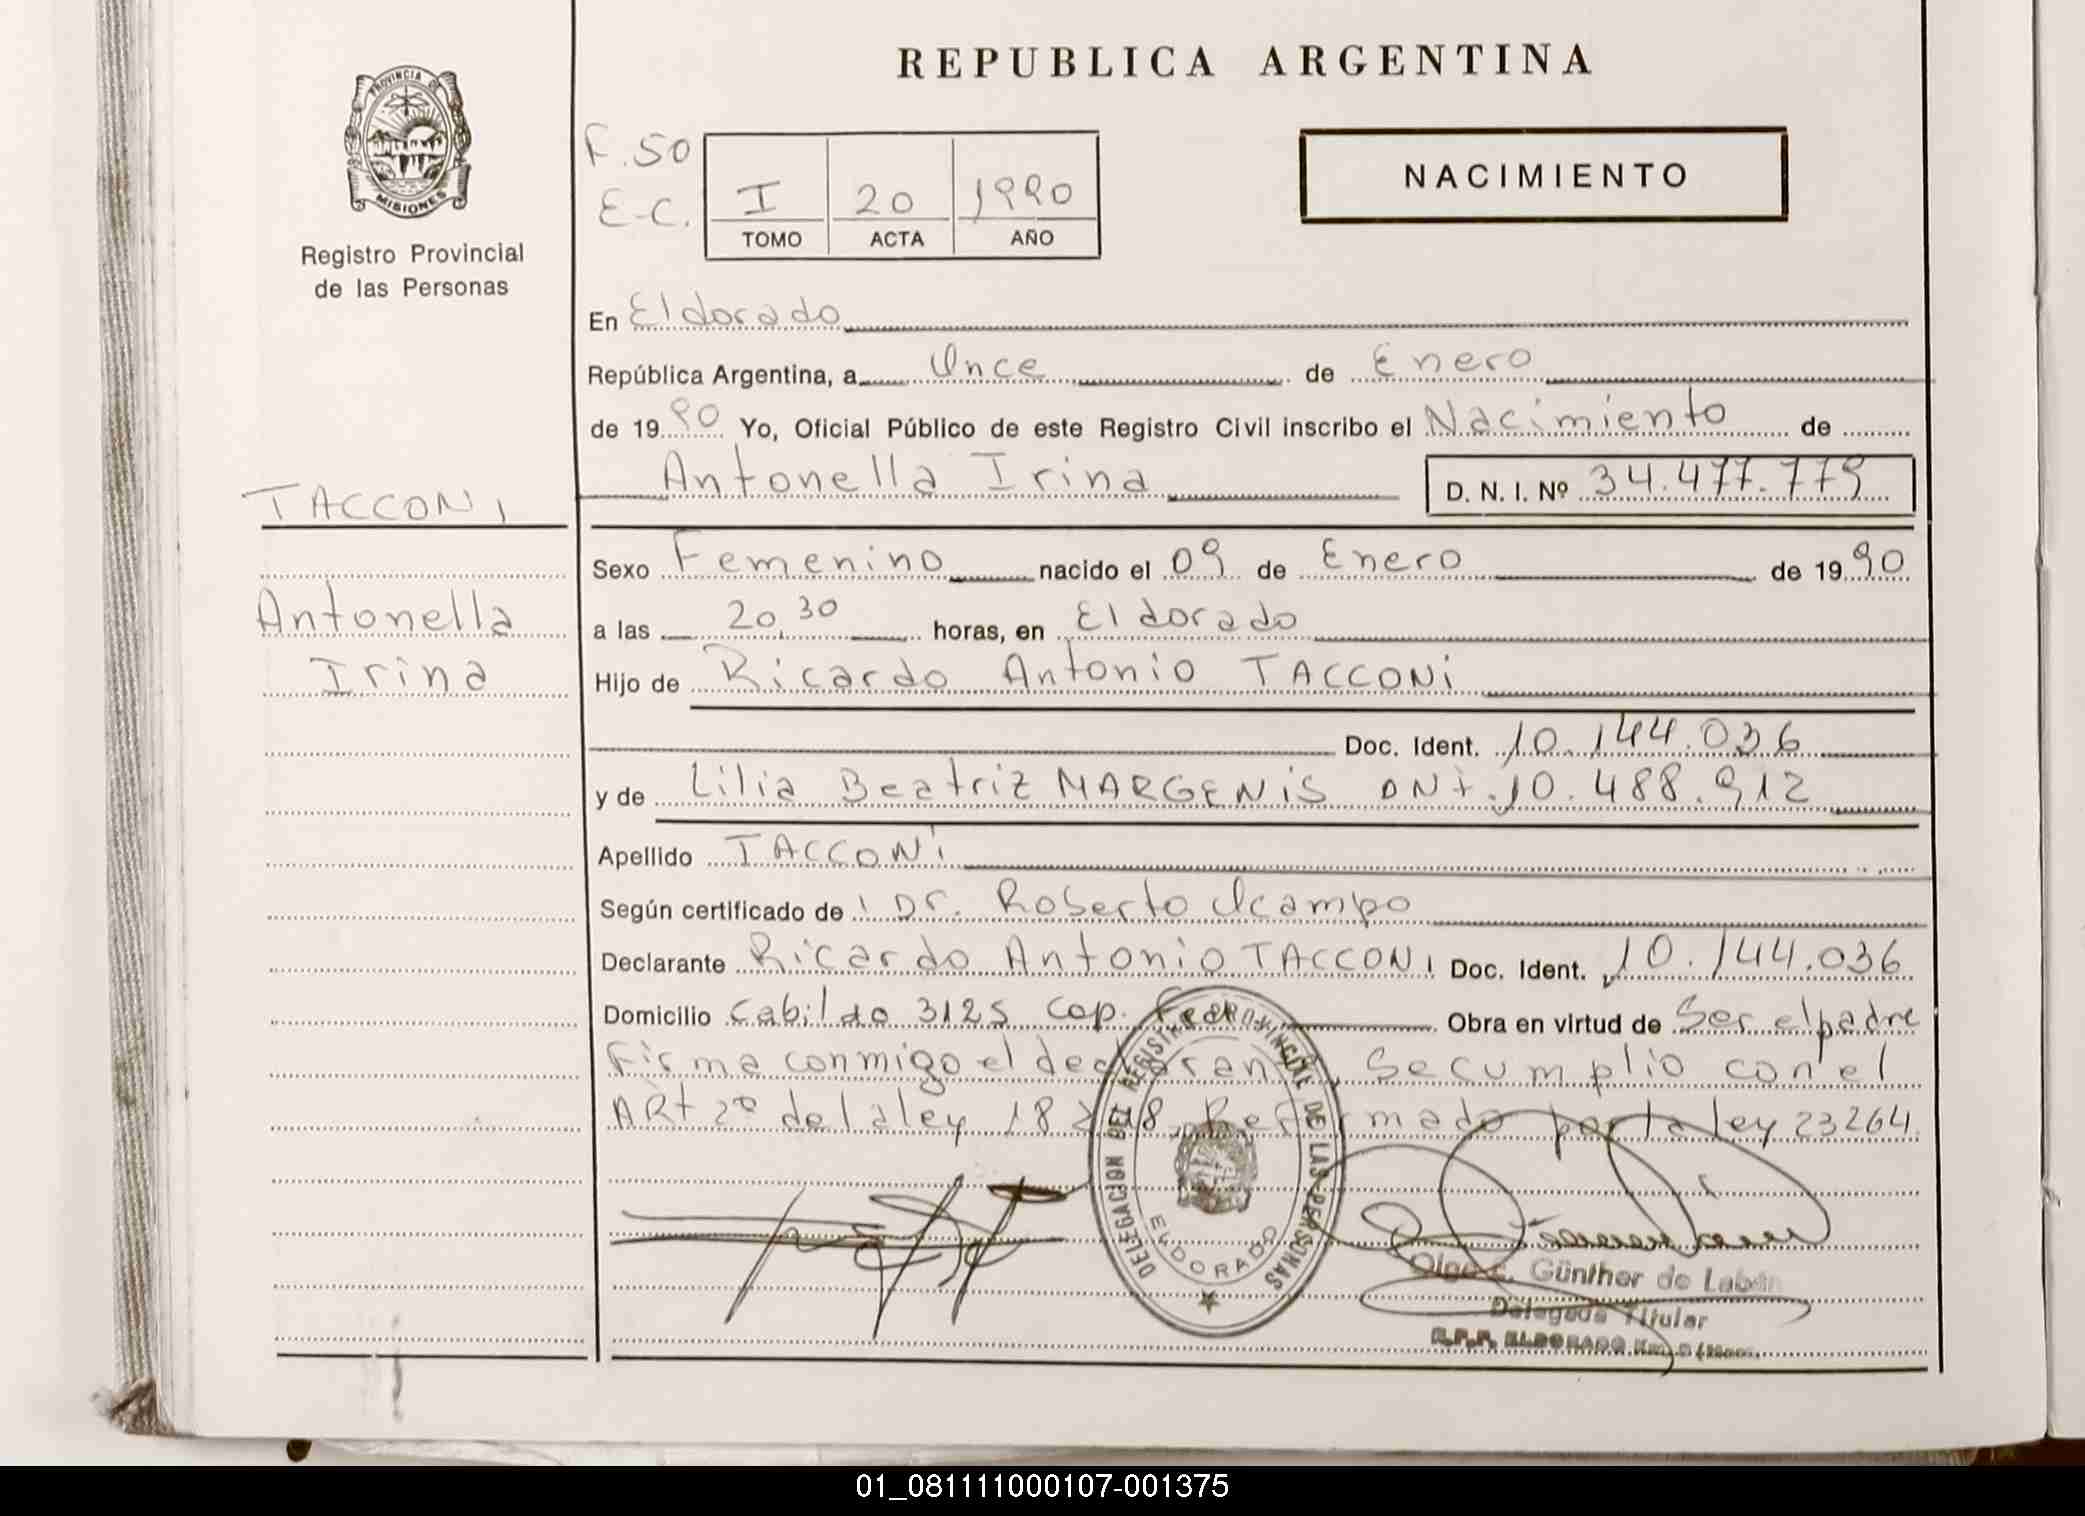 REPUBLICA ARGENTINA
PROVINCIA DE
MISIONES
Registro Provincial
de las Personas
F.50
E-C.
I 20 1990
TOMO ACTA AÑO
NACIMIENTO
En Eldorado
República Argentina, a Once de Enero
de 1990 Yo, Oficial Público de este Registro Civil inscribo el Nacimiento de
Antonella Irina D. N. I. Nº 34.477.779
TACCONI
Antonella
Irina
Sexo Femenino nacido el 09 de Enero de 1990
a las 20,30 horas, en Eldorado
Hijo de Ricardo Antonio TACCONi
Doc. Ident. 10.144.036
y de Lilia Beatriz MARGENiS DNi.10.488.912
Apellido TACCONi
Según certificado de Dr. Roberto Ocampo
Declarante Ricardo Antonio TACCONI Doc. Ident. 10.144.036
Domicilio Cabildo 3125 Cap. Fed. Obra en virtud de Ser el padre
Firma conmigo el declarante, Se cumplio con el
ARt 2º de la ley 18248, Reformado por la ley 23264.
DELEGACION DEL REGISTRO PROVINCIAL DE LAS PERSONAS
ELDORADO
Olga E. Günther de Labán
Delegada Titular
R.P.P. ELDORADO Km.
01_081111000107-001375